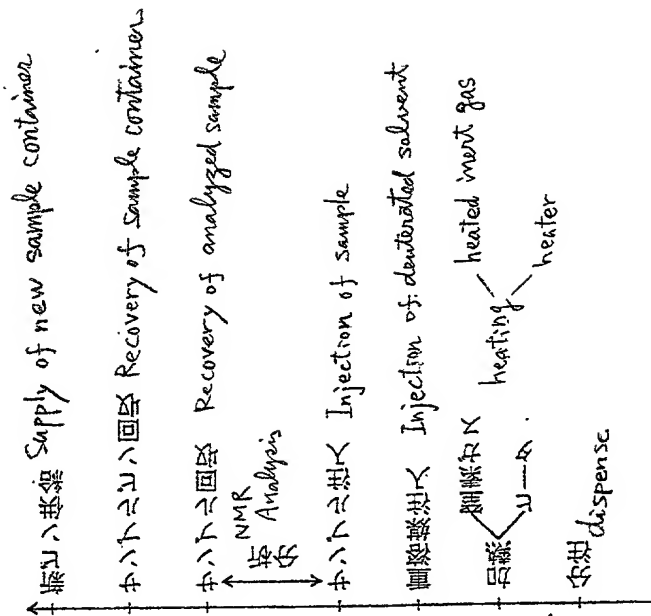 新ビン供給 Supply of new sample container
サンプルビン回収 Recovery of sample container
サンプル回収 Recovery of analyzed sample
分析
NMR
Analysis
サンプル注入 Injection of sample
重溶媒注入 Injection of deuterated solvent
加熱
ガス
ヒータ.
heating
heated inert gas
heater
分注
dispense